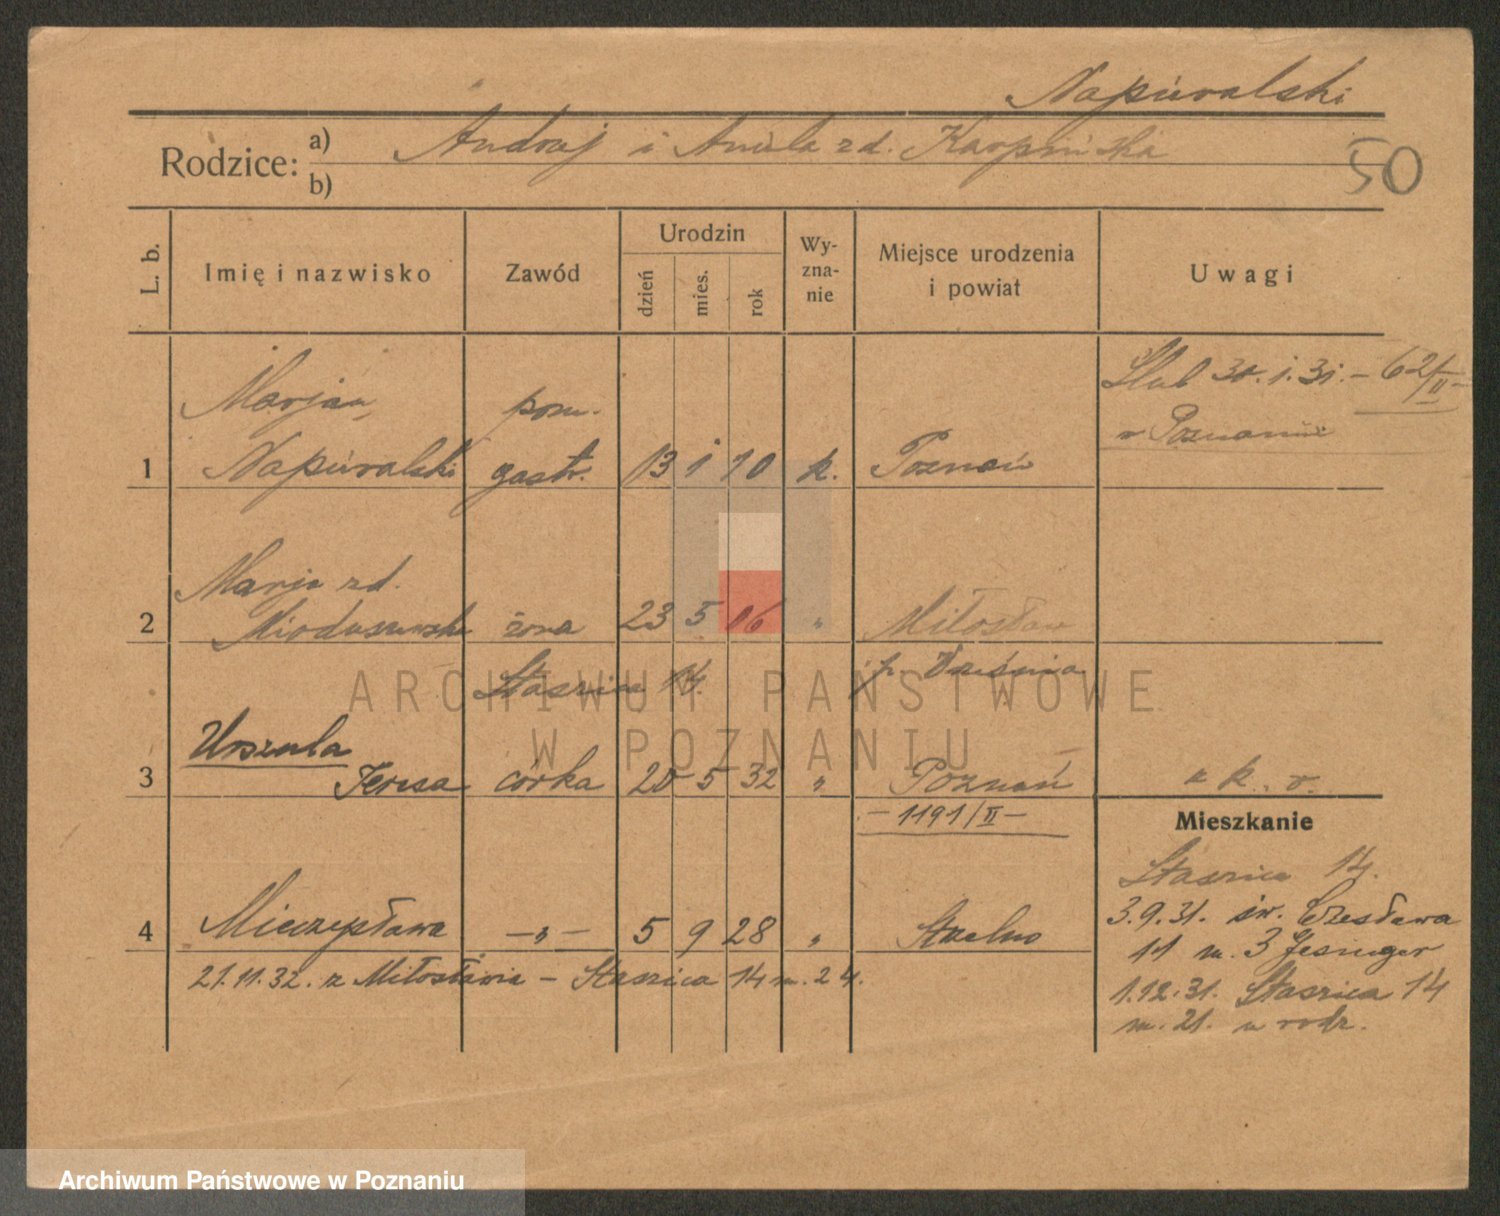 Napieralski
Rodzice: a) Andrzej i Aniela zd. Karpińska
b)
50
L. b.
Imię i nazwisko
Zawód
Urodzin
dzień
mies.
rok
Wy-
zna-
nie
Miejsce urodzenia
i powiat
Uwagi
Marjan
pom.
Ślub 30.1.31. – 62/II –
w Poznaniu
1 Napieralski gastr. 13 1 10 k. Poznań
Marja zd.
2 Mioduszewska żona 23 5 06 " Miłosław
Staszica 14. p. Września
Urszula
3 Teresa córka 20 5 32 " Poznań
– 1191/II –
Mieszkanie
Staszica 14.
4 Mieczysława –"– 5 9 28 " Strzelno
3.9.31. św. Czesława
11 m. 3
21.11.32. z Miłosławia – Staszica 14 m. 24.
1.12.31. Staszica 14
m. 21. u rodz.
ARCHIWUM PAŃSTWOWE
W POZNANIU
Archiwum Państwowe w Poznaniu